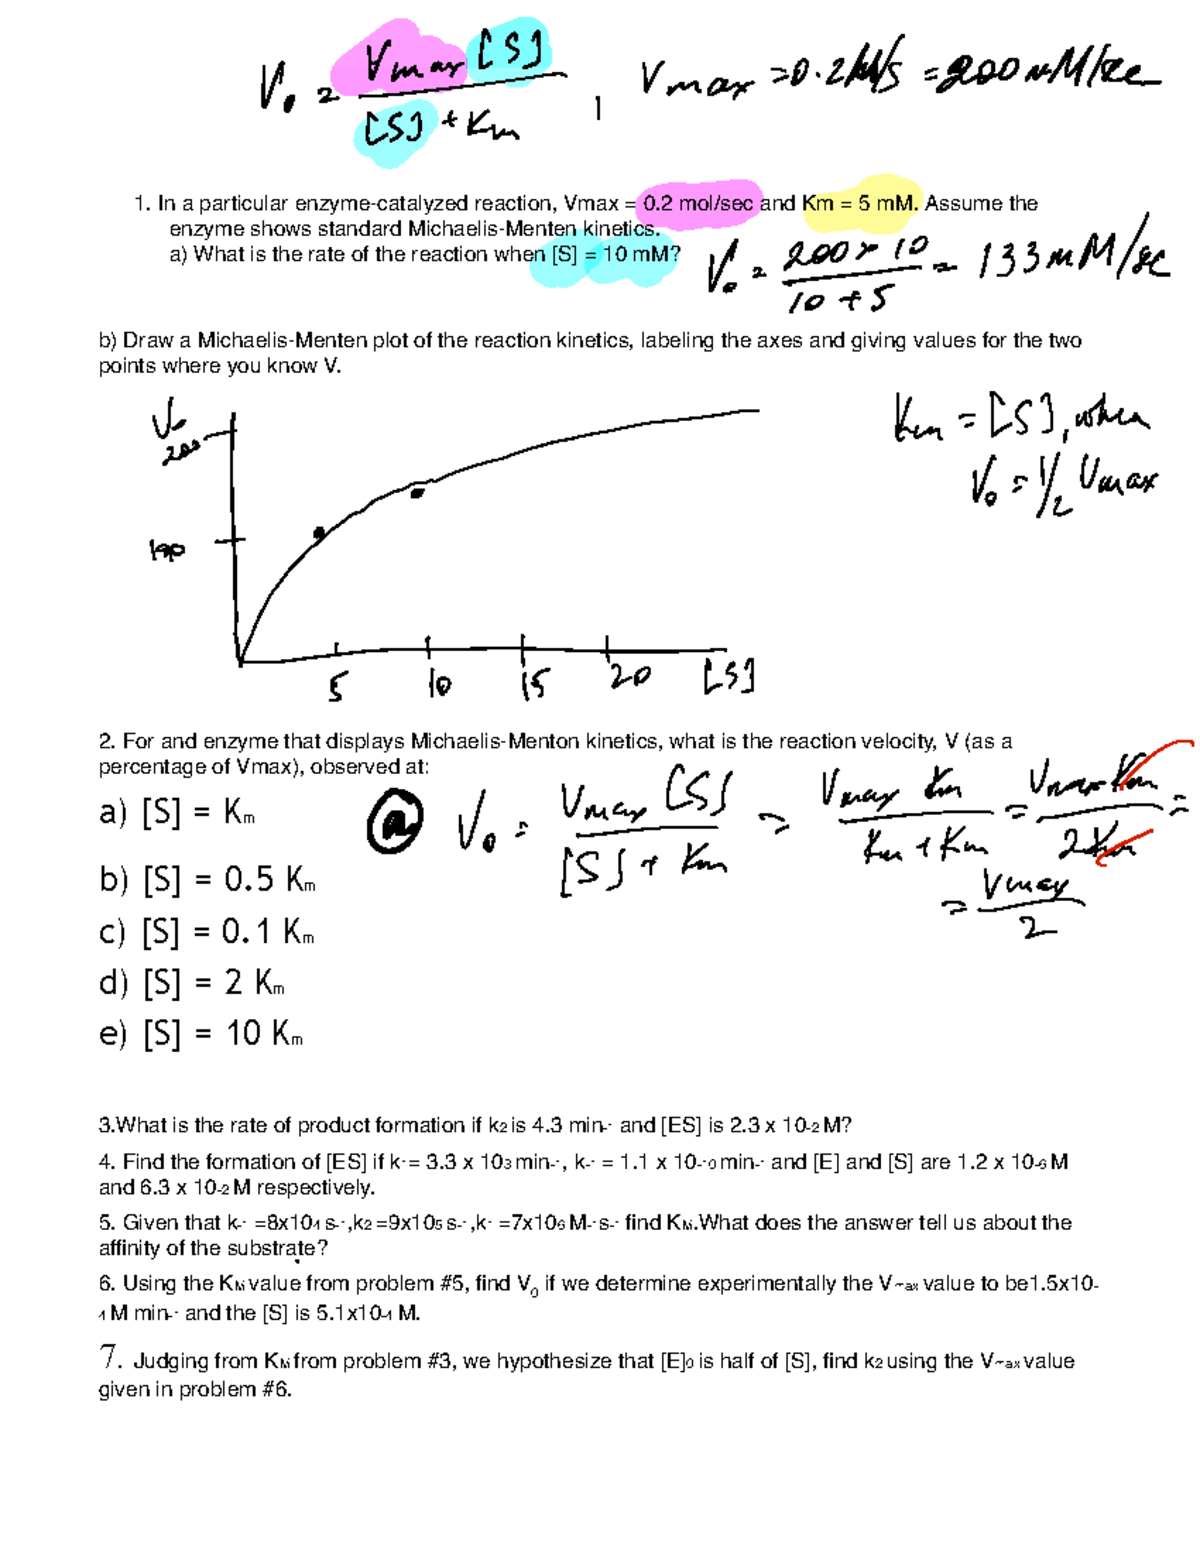 V₀ = Vmax [S] / [S] + Km , Vmax = 0.2 M/s = 200 mM/sec
1. In a particular enzyme-catalyzed reaction, Vmax = 0.2 mol/sec and Km = 5 mM. Assume the
enzyme shows standard Michaelis-Menten kinetics.
a) What is the rate of the reaction when [S] = 10 mM?
V₀ = 200 × 10 / 10 + 5 = 133 mM/sec
b) Draw a Michaelis-Menten plot of the reaction kinetics, labeling the axes and giving values for the two
points where you know V.
V₀
200
100
5 10 15 20 [S]
Km = [S], when
V₀ = 1/2 Vmax
2. For and enzyme that displays Michaelis-Menton kinetics, what is the reaction velocity, V (as a
percentage of Vmax), observed at:
a) [S] = Km
b) [S] = 0.5 Km
c) [S] = 0.1 Km
d) [S] = 2 Km
e) [S] = 10 Km
a V₀ = Vmax [S] / [S] + Km = Vmax Km / Km + Km = Vmax Km / 2 Km =
= Vmax / 2
3.What is the rate of product formation if k2 is 4.3 min-¹ and [ES] is 2.3 x 10-2 M?
4. Find the formation of [ES] if k¹= 3.3 x 103 min-¹, k-¹ = 1.1 x 10-¹0 min-¹ and [E] and [S] are 1.2 x 10-6 M
and 6.3 x 10-2 M respectively.
5. Given that k-¹ =8x104 s-¹,k2 =9x105 s-¹ ,k¹ =7x106 M-¹s-¹ find KM.What does the answer tell us about the
affinity of the substrate?
6. Using the KM value from problem #5, find V0 if we determine experimentally the Vmax value to be1.5x10-
4 M min-¹ and the [S] is 5.1x10-4 M.
7. Judging from KM from problem #3, we hypothesize that [E]0 is half of [S], find k2 using the Vmax value
given in problem #6.